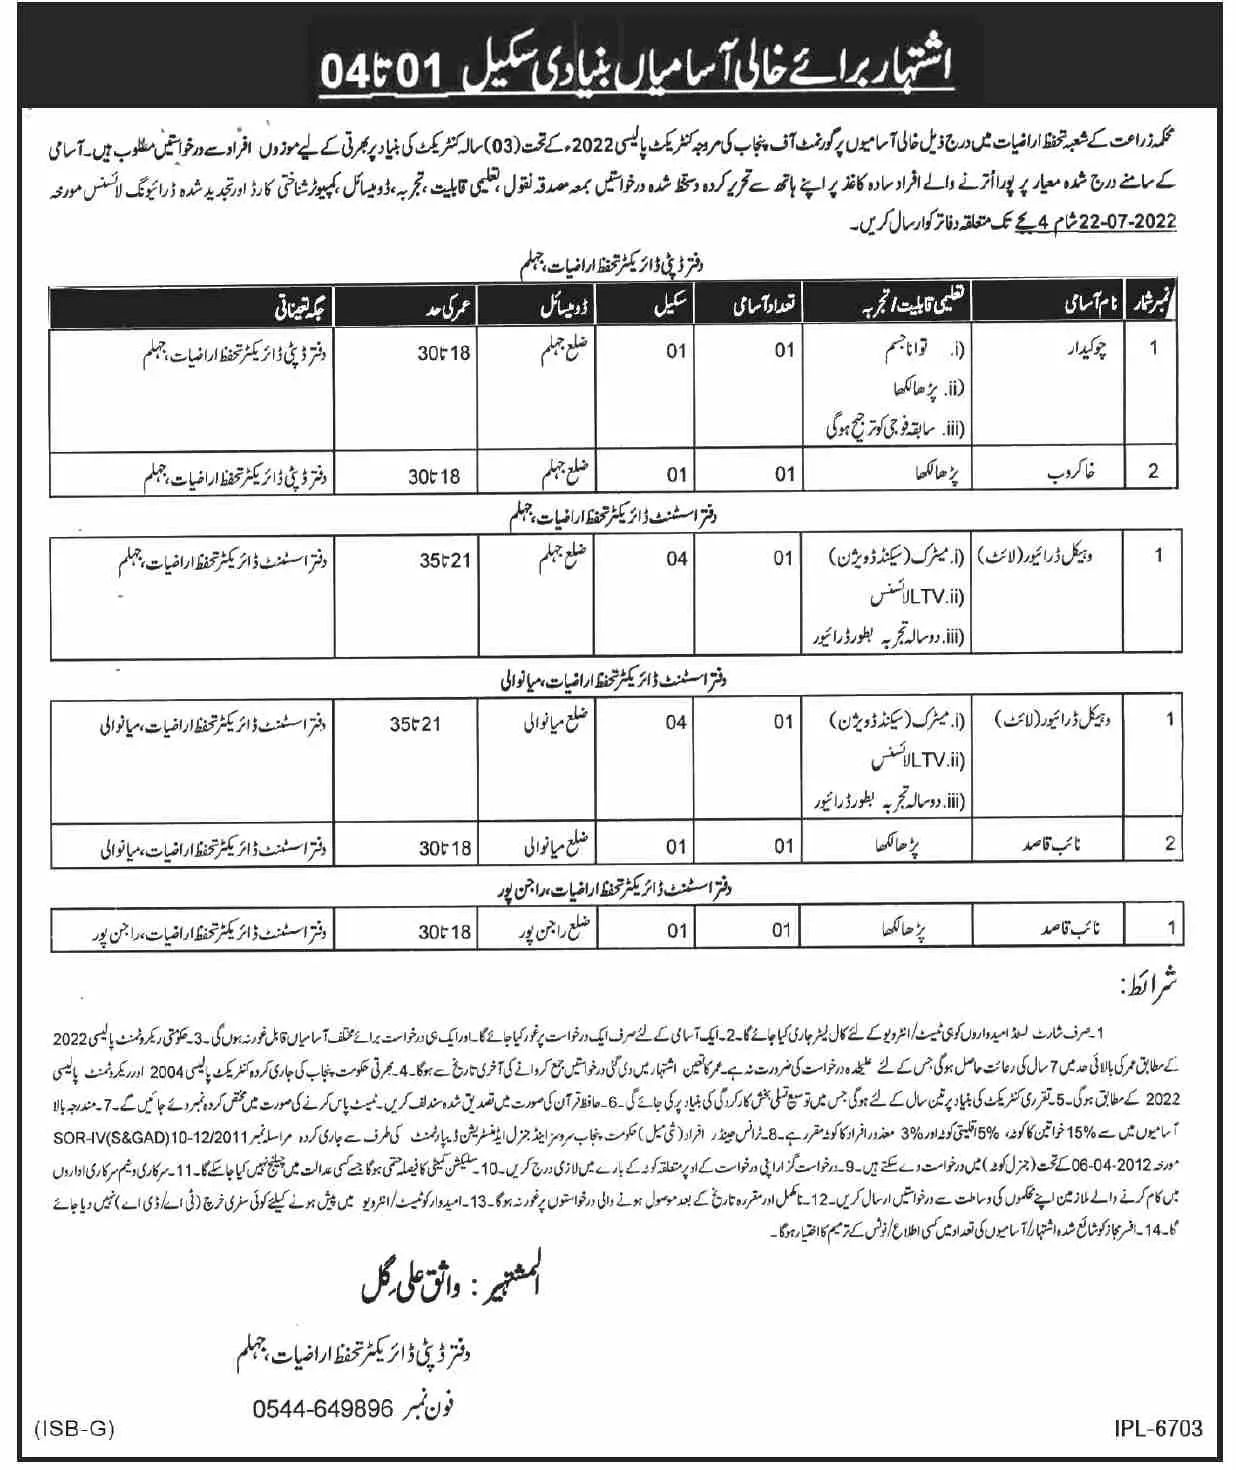 اشتہار برائے خالی آسامیاں بنیادی سکیل 01 تا 04
محکمہ زراعت کے شعبہ تحفظ اراضیات میں درج ذیل خالی آسامیوں پر گورنمنٹ آف پنجاب کی مروجہ کنٹریکٹ پالیسی 2022ء کے تحت (03) سالہ کنٹریکٹ کی بنیاد پر بھرتی کے لیے موزوں افراد سے درخواستیں مطلوب ہیں۔ آسامی
کے سامنے درج شدہ معیار پر پورا اُترنے والے افراد سادہ کاغذ پر اپنے ہاتھ سے تحریر کردہ و دستخط شدہ درخواستیں بمعہ مصدقہ نقول، تعلیمی قابلیت، تجربہ، ڈومیسائل، کمپیوٹر شناختی کارڈ اور تجدید شدہ ڈرائیونگ لائسنس مورخہ
22-07-2022 شام 4 بجے تک متعلقہ دفاتر کو ارسال کریں۔
دفتر ڈپٹی ڈائریکٹر تحفظ اراضیات، جہلم
نمبر شمار نام آسامی تعلیمی قابلیت/تجربہ تعداد آسامی سکیل ڈومیسائل عمر کی حد جگہ تعیناتی
1 چوکیدار i). توانا جسم 01 01 ضلع جہلم 18 تا 30 دفتر ڈپٹی ڈائریکٹر تحفظ اراضیات، جہلم
ii). پڑھا لکھا
iii). سابقہ فوجی کو ترجیح ہوگی
2 خاکروب پڑھا لکھا 01 01 ضلع جہلم 18 تا 30 دفتر ڈپٹی ڈائریکٹر تحفظ اراضیات، جہلم
دفتر اسسٹنٹ ڈائریکٹر تحفظ اراضیات، جہلم
1 وہیکل ڈرائیور (لائٹ) i). میٹرک (سیکنڈ ڈویژن) 01 04 ضلع جہلم 21 تا 35 دفتر اسسٹنٹ ڈائریکٹر تحفظ اراضیات، جہلم
ii). LTV لائسنس
iii). دو سالہ تجربہ بطور ڈرائیور
دفتر اسسٹنٹ ڈائریکٹر تحفظ اراضیات، میانوالی
1 وہیکل ڈرائیور (لائٹ) i). میٹرک (سیکنڈ ڈویژن) 01 04 ضلع میانوالی 21 تا 35 دفتر اسسٹنٹ ڈائریکٹر تحفظ اراضیات، میانوالی
ii). LTV لائسنس
iii). دو سالہ تجربہ بطور ڈرائیور
2 نائب قاصد پڑھا لکھا 01 01 ضلع میانوالی 18 تا 30 دفتر اسسٹنٹ ڈائریکٹر تحفظ اراضیات، میانوالی
دفتر اسسٹنٹ ڈائریکٹر تحفظ اراضیات، راجن پور
1 نائب قاصد پڑھا لکھا 01 01 ضلع راجن پور 18 تا 30 دفتر اسسٹنٹ ڈائریکٹر تحفظ اراضیات، راجن پور
شرائط:
1۔ صرف شارٹ لسٹڈ امیدواروں کو ہی ٹیسٹ/انٹرویو کے لئے کال لیٹر جاری کیا جائے گا۔ 2۔ ایک آسامی کے لئے صرف ایک درخواست پر غور کیا جائے گا۔ اور ایک ہی درخواست برائے مختلف آسامیاں قابل غور نہ ہوں گی۔ 3۔ حکومتی ریکروٹمنٹ پالیسی 2022
کے مطابق عمر کی بالائی حد میں 7 سال کی رعائت حاصل ہوگی جس کے لئے علیحدہ درخواست کی ضرورت نہ ہے۔ عمر کا تعین اشتہار میں دی گئی درخواستیں جمع کروانے کی آخری تاریخ سے ہوگا۔ 4۔ بھرتی حکومت پنجاب کی جاری کردہ کنٹریکٹ پالیسی 2004 اور ریکروٹمنٹ پالیسی
2022 کے مطابق ہوگی۔ 5۔ تقرری کنٹریکٹ کی بنیاد پر تین سال کے لئے ہوگی جس میں توسیع تسلی بخش کارکردگی کی بنیاد پر کی جائے گی۔ 6۔ حافظ قرآن کی صورت میں تصدیق شدہ سند لف کریں۔ ٹیسٹ پاس کرنے کی صورت میں مختص کردہ نمبر دئے جائیں گے۔ 7۔ مندرجہ بالا
آسامیوں میں سے 15% خواتین کا کوٹہ، 5% اقلیتی کوٹہ اور 3% معذور افراد کا کوٹہ مقرر ہے۔ 8۔ ٹرانس جینڈر افراد (شی میل) حکومت پنجاب سروسز اینڈ جنرل ایڈمنسٹریشن ڈیپارٹمنٹ کی طرف سے جاری کردہ مراسلہ نمبر SOR-IV(S&GAD)10-12/2011
مورخہ 06-04-2012 کے تحت (جنرل کوٹہ) میں درخواست دے سکتے ہیں۔ 9۔ درخواست گزار اپنی درخواست کے اوپر متعلقہ کوٹہ کے بارے میں لازمی درج کریں۔ 10۔ سلیکشن کمیٹی کا فیصلہ حتمی ہوگا جسے کسی عدالت میں چیلنج نہیں کیا جا سکے گا۔ 11۔ سرکاری و نیم سرکاری اداروں
میں کام کرنے والے ملازمین اپنے محکموں کی وساطت سے درخواستیں ارسال کریں۔ 12۔ نامکمل اور مقررہ تاریخ کے بعد موصول ہونے والی درخواستوں پر غور نہ ہوگا۔ 13۔ امیدوار کو ٹیسٹ/انٹرویو میں پیش ہونے کیلئے کوئی سفری خرچ (ٹی اے/ڈی اے) نہیں دیا جائے
گا۔ 14۔ افسر مجاز کو شائع شدہ اشتہار/آسامیوں کی تعداد میں کسی اطلاع/نوٹس کے ترمیم کا اختیار ہوگا۔
المشتہر: واثق علی گل
دفتر ڈپٹی ڈائریکٹر تحفظ اراضیات، جہلم
فون نمبر 0544-649896
(ISB-G) IPL-6703